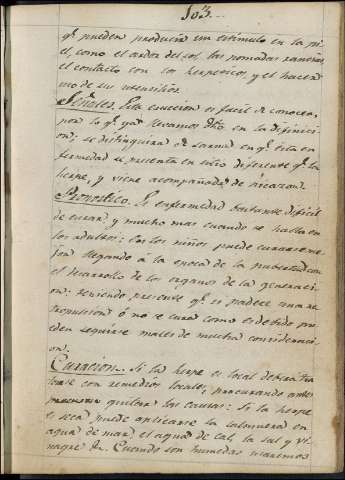 103..
qᵉ pueden producir un estimulo en la pi-
el, como el ardor del sol, las pomadas rancias,
el contacto con los herpeticos, y el hacer u-
so de sus utensilios.
Señales. Esta erupcion es facil de conocer
por lo qᵉ ya llevamos dho. en la difinici-
on; se distinguira de sarna en qᵉ esta en-
fermedad se presenta en sitio diferente qᵉ la
herpe, y viene acompañada de picazon.
Pronostico. Es enfermedad bastante dificil
de curar y mucho mas cuando se halla en
los adultos: En los niños puede curarse me-
jor llegando á la epoca de la pubertad con
el desarrollo de los organos de la generaci-
on: teniendo presente qᵉ si padece una re-
tropulsion ó no se cura como es debido pu-
eden seguirse males de mucha consideraci-
on.
Curacion. Si la herpe es local debera tra
tarse con remedios locales, procurando antes
quitar las causas: Si la herpe
es seca puede aplicarse la salmuera en
agua de mar, el agua de cal, la sal y vi-
nagre &. Cuando son humedas usaremos